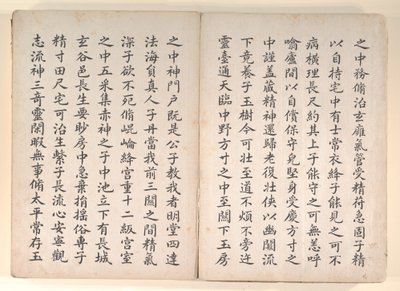 之中務脩治玄雁氣管受精符急固子精
以自持宅中有士常衣絳子能見之可不
病橫理長尺約其上子能守之可無恙呼
噏廬間以自償保守完堅身受慶方寸之
中謹蓋藏精神還歸老復壯俠以幽闕流
下竟養子玉樹令可壯至道不煩不旁迕
靈臺通天臨中野方寸之中至關下玉房
之中神門戶既是公子教我者明堂四達
法海員真人子丹當我前三關之間精氣
深子欲不死脩崐崘絳宮重十二級宮室
之中五采集赤神之子中池立下有長城
玄谷邑長生要眇房中急棄捐搖俗專子
精寸田尺宅可治生繫子長流心安寧觀
志流神三奇靈閑暇無事脩太平常存玉